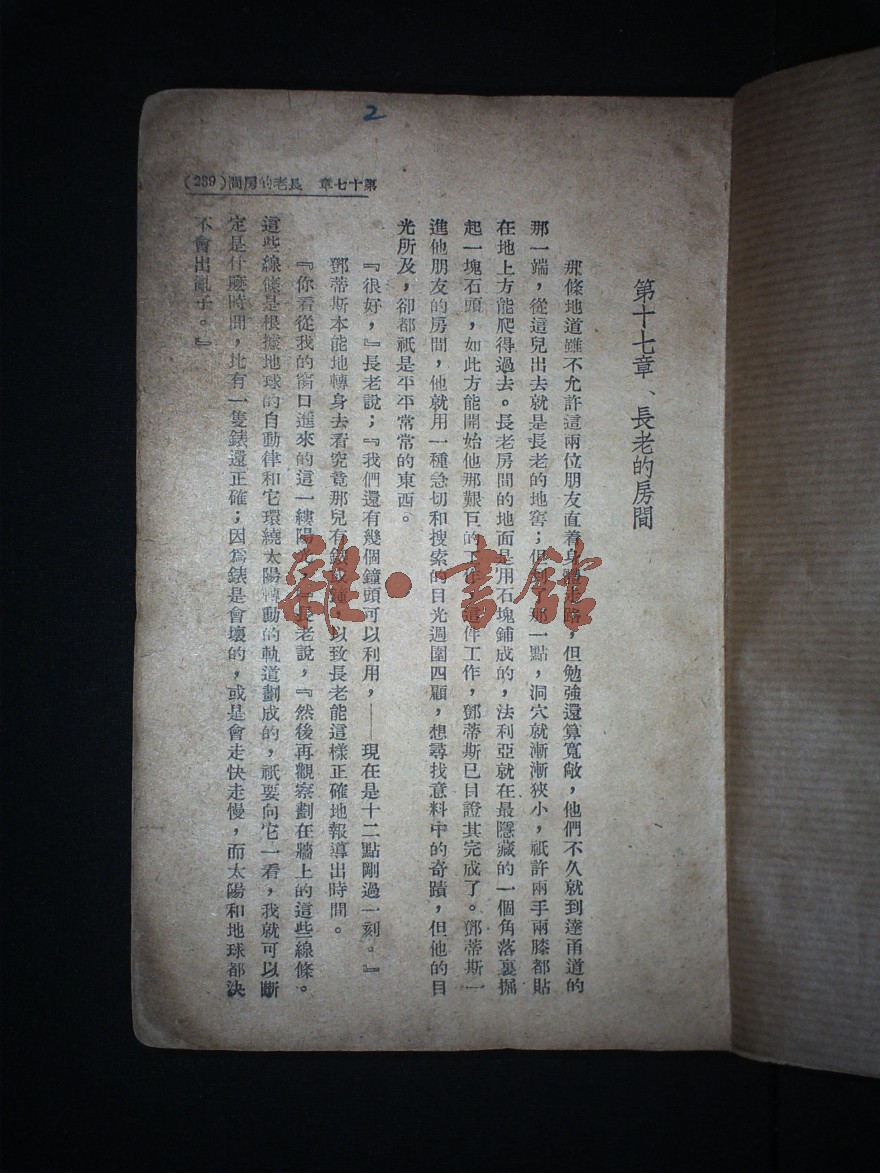 2
第十七章 長老的房間(289)
第十七章、長老的房間
那條地道雖不允許這兩位朋友直着身體走路，但勉強還算寬敞，他們不久就到達甬道的
那一端，從這兒出去就是長老的地窖；但到了那一點，洞穴就漸漸狹小，祇許兩手兩膝都貼
在地上方能爬得過去。長老房間的地面是用石塊鋪成的，法利亞就在最隱藏的一個角落裏掘
起一塊石頭，如此方能開始他那艱巨的工作，這件工作，鄧蒂斯已目證其完成了。鄧蒂斯一
進他朋友的房間，他就用一種急切和搜索的目光週圍四顧，想尋找意料中的奇蹟，但他的目
光所及，卻都祇是平平常常的東西。
『很好，』長老說；『我們還有幾個鐘頭可以利用，——現在是十二點剛過一刻。』
鄧蒂斯本能地轉身去看究竟那兒有錶或鐘，以致長老能這樣正確地報導出時間。
『你看從我的窗口進來的這一縷陽光，』長老說，『然後再觀察劃在牆上的這些線條。
這些線條是根據地球的自動律和它環繞太陽轉動的軌道劃成的，祇要向它一看，我就可以斷
定是什麼時間，比有一隻錶還正確；因爲錶是會壞的，或是會走快走慢，而太陽和地球都決
不會出亂子。』
雜·書館